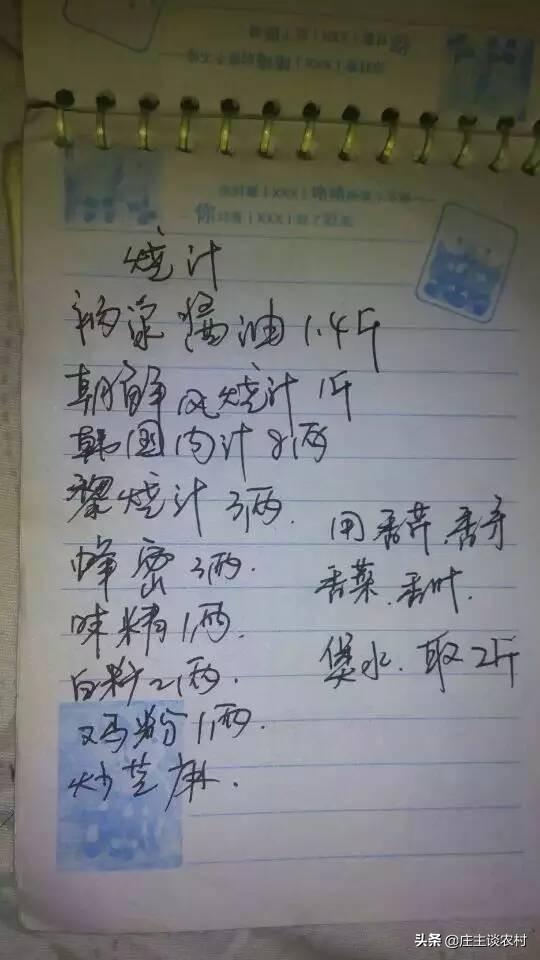 烧汁
酱油1.4斤
朝鲜风烧汁1斤
韩国肉汁8两
烧汁3两.
蜂蜜3两.
味精1两.
白糖2两.
鸡粉1两.
炒芝麻.
用香芹.香
香菜.香叶.
煲水.取2斤
头条 @庄主谈农村